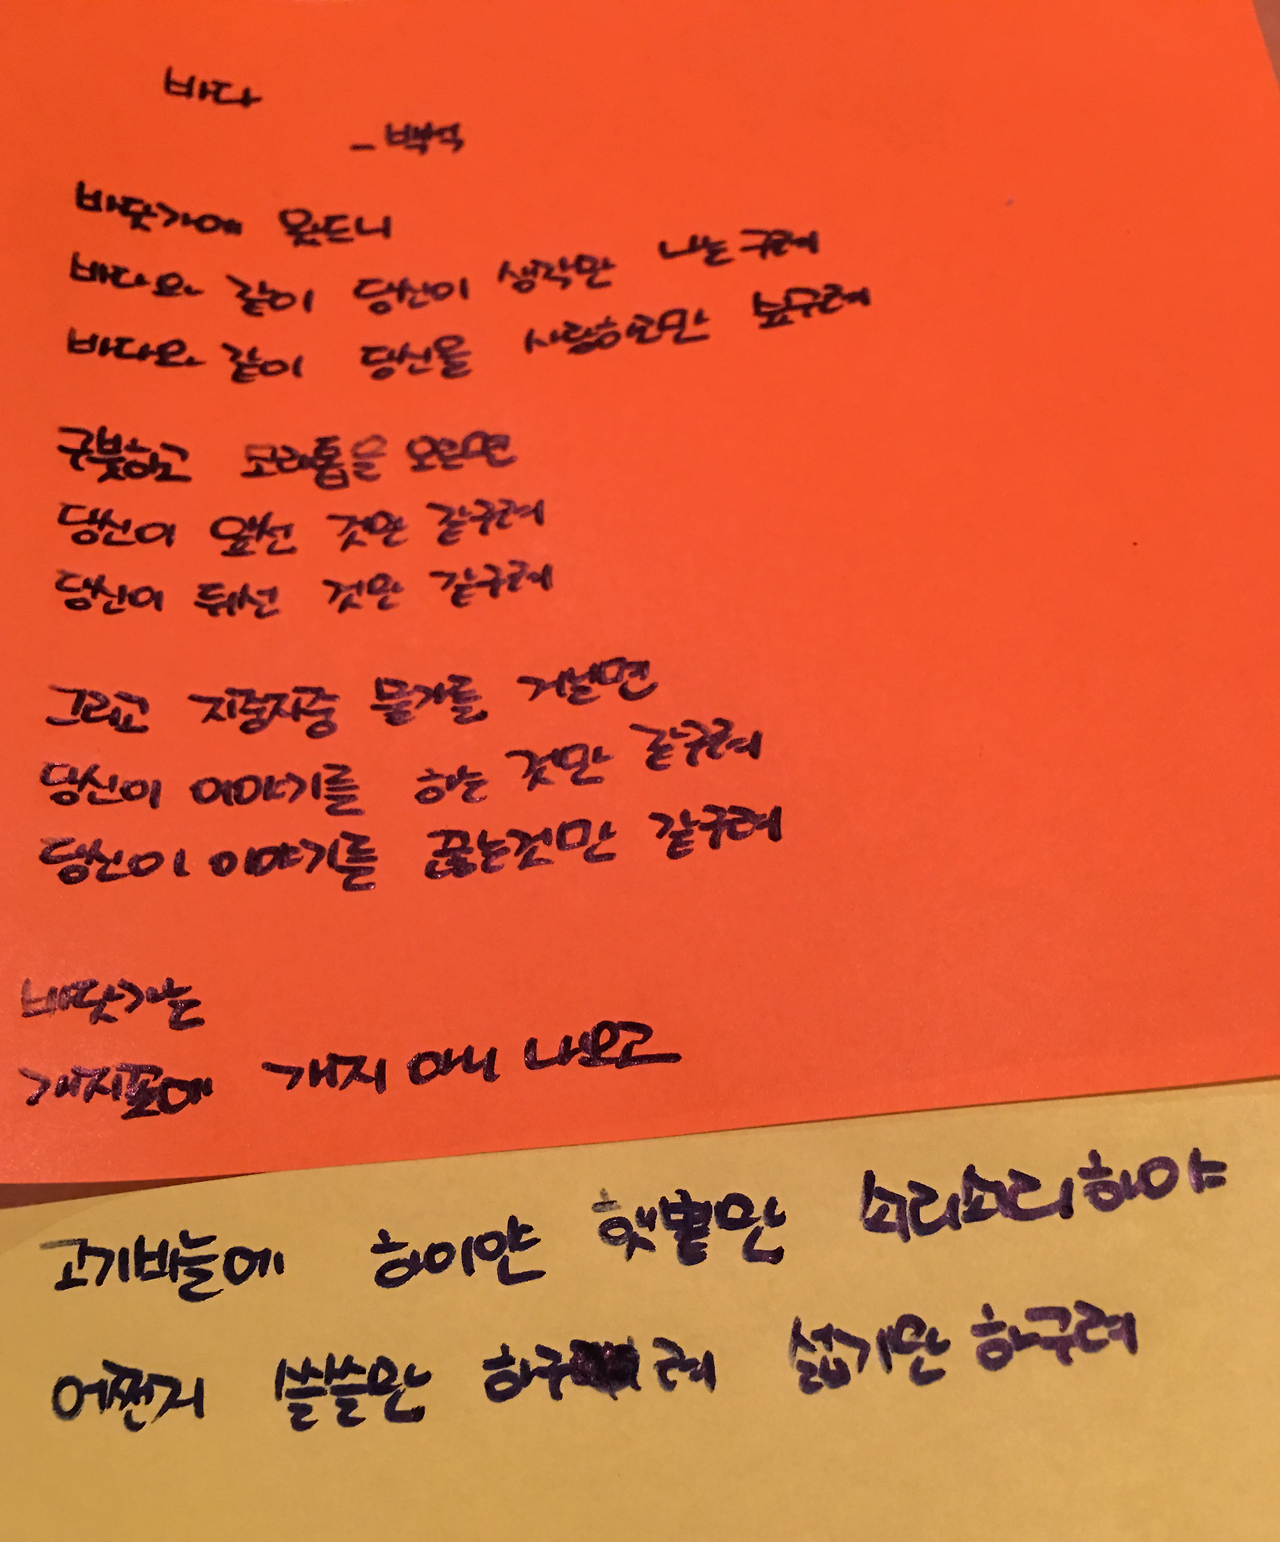 바다
- 백석
바닷가에 왔드니
바다와 같이 당신이 생각만 나는구려
바다와 같이 당신을 사랑하고만 싶구려
구붓하고 모래톱을 오르면
당신이 앞선 것만 같구려
당신이 뒤선 것만 같구려
그리고 지중지중 물가를 거닐면
당신이 이야기를 하는 것만 같구려
당신이 이야기를 끊는것만 같구려
바닷가는
개지꽃에 개지 아니 나오고
고기비늘에 하이얀 햇볕만 쇠리쇠리하야
어쩐지 쓸쓸만 하구려 섧기만 하구려